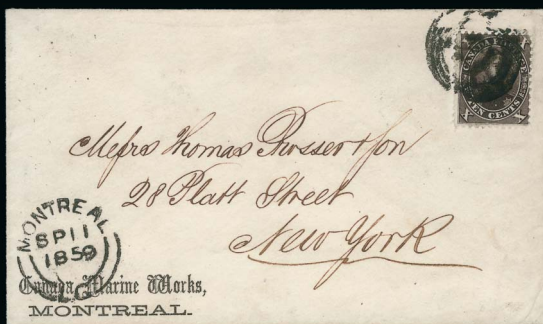 CANADA POSTAGE
TEN CENTS
X X
Messrs Thomas Prosser & Son
28 Platt Street
New York
MONTREAL
SP 11
1859
LC
Canada Marine Works,
MONTREAL.